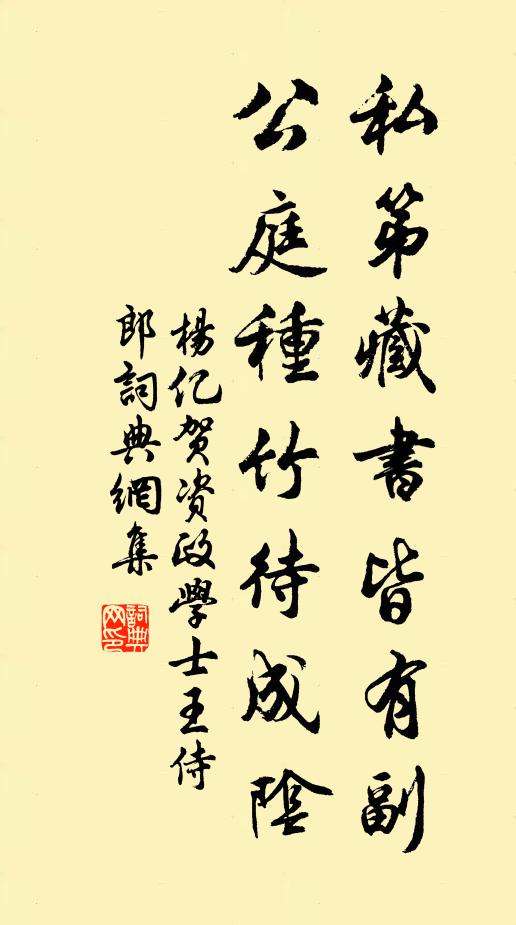 私第藏書皆有副
公庭種竹待成陰
楊亿贺资政學士王侍
郎詞典網集
詞典網印